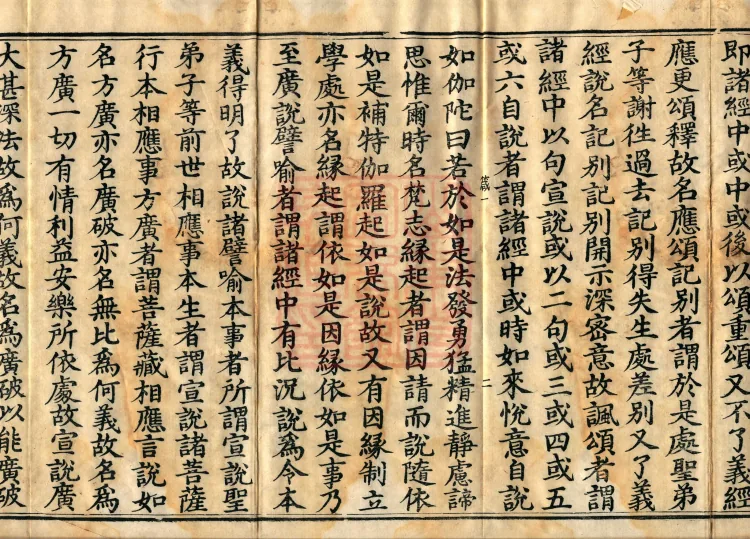 即諸經中或中或後以頌重頌又不了義經
應更頌釋故名應頌記別者謂於是處聖弟
子等謝徃過去記別得失生處差別又了義
經說名記別記別開示深密意故諷頌者謂
諸經中以句宣說或以二句或三或四或五
或六自說者謂諸經中或時如來悅意自說
箴一
二
如伽陀曰若於如是法發勇猛精進静慮諦
思惟爾時名梵志縁起者謂因請而說隨依
如是補特伽羅起如是說故又有因縁制立
學處亦名縁起謂依如是因縁依如是事乃
至廣說譬喻者謂諸經中有比況說爲令本
義得明了故說諸譬喻本事者所謂宣說聖
弟子等前世相應事本生者謂宣說諸菩薩
行本相應事方廣者謂菩薩藏相應言說如
名方廣亦名廣破亦名無比爲何義故名爲
方廣一切有情利益安樂所依處故宣說廣
大甚深法故爲何義故名爲廣破以能廣破